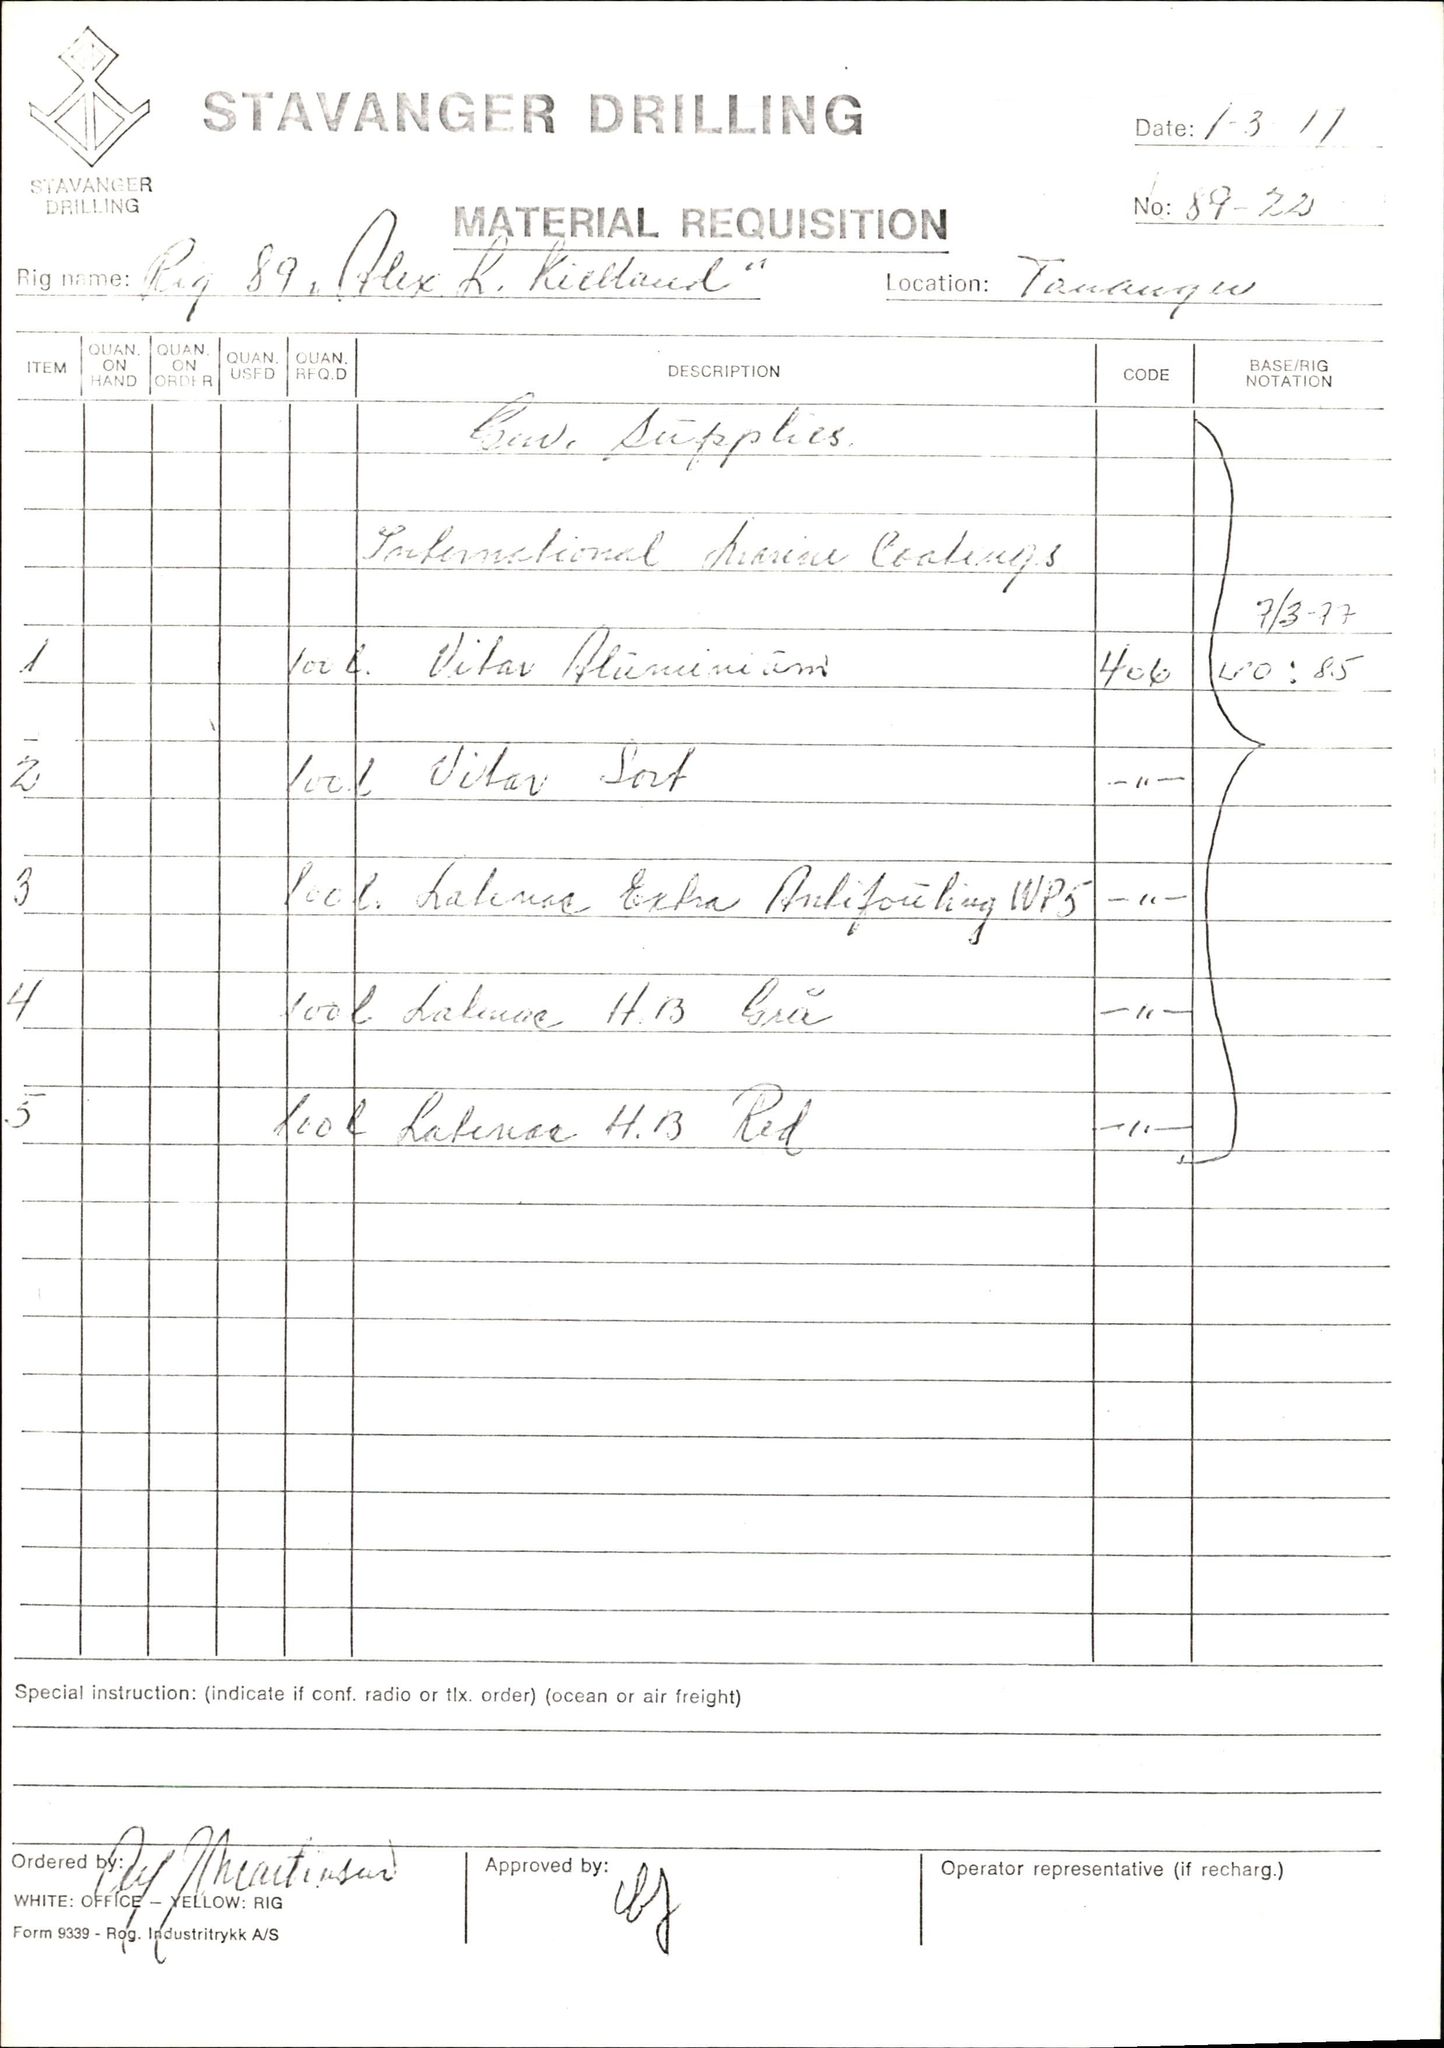 STAVANGER DRILLING
STAVANGER
DRILLING
Date: 1-3-77
No: 89-22
MATERIAL REQUISITION
Rig name: Rig 89 „Alex L. Kielland"
Location: Tananger
ITEM
QUAN. ON HAND
QUAN. ON ORDER
QUAN. USED
QUAN. REQ.D
DESCRIPTION
CODE
BASE/RIG NOTATION
Supplies.
International Marine Coatings
7/3-77
1 100 l. Vitar Aluminium 406 WO: 85
2 100 l Vitar Sort -"-
3 100 l. Latenac Extra Antifouling WP5 -"-
4 100 l Latenac H.B Grå -"-
5 100 l Latenac H.B Red -"-
Special instruction: (indicate if conf. radio or tlx. order) (ocean or air freight)
Ordered by: Martinsen
Approved by:
Operator representative (if recharg.)
WHITE: OFFICE – YELLOW: RIG
Form 9339 - Rog. Industritrykk A/S